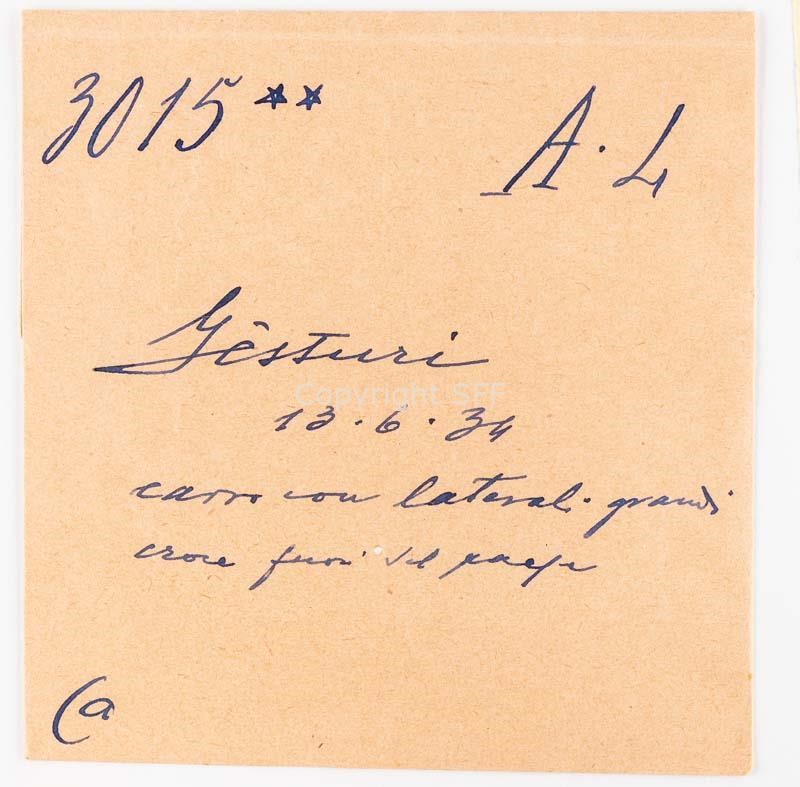 3015**
A. L
Gèsturi
Copyright SFF
13.6.34
carro con laterali grandi
croce fuori del paese
Ca